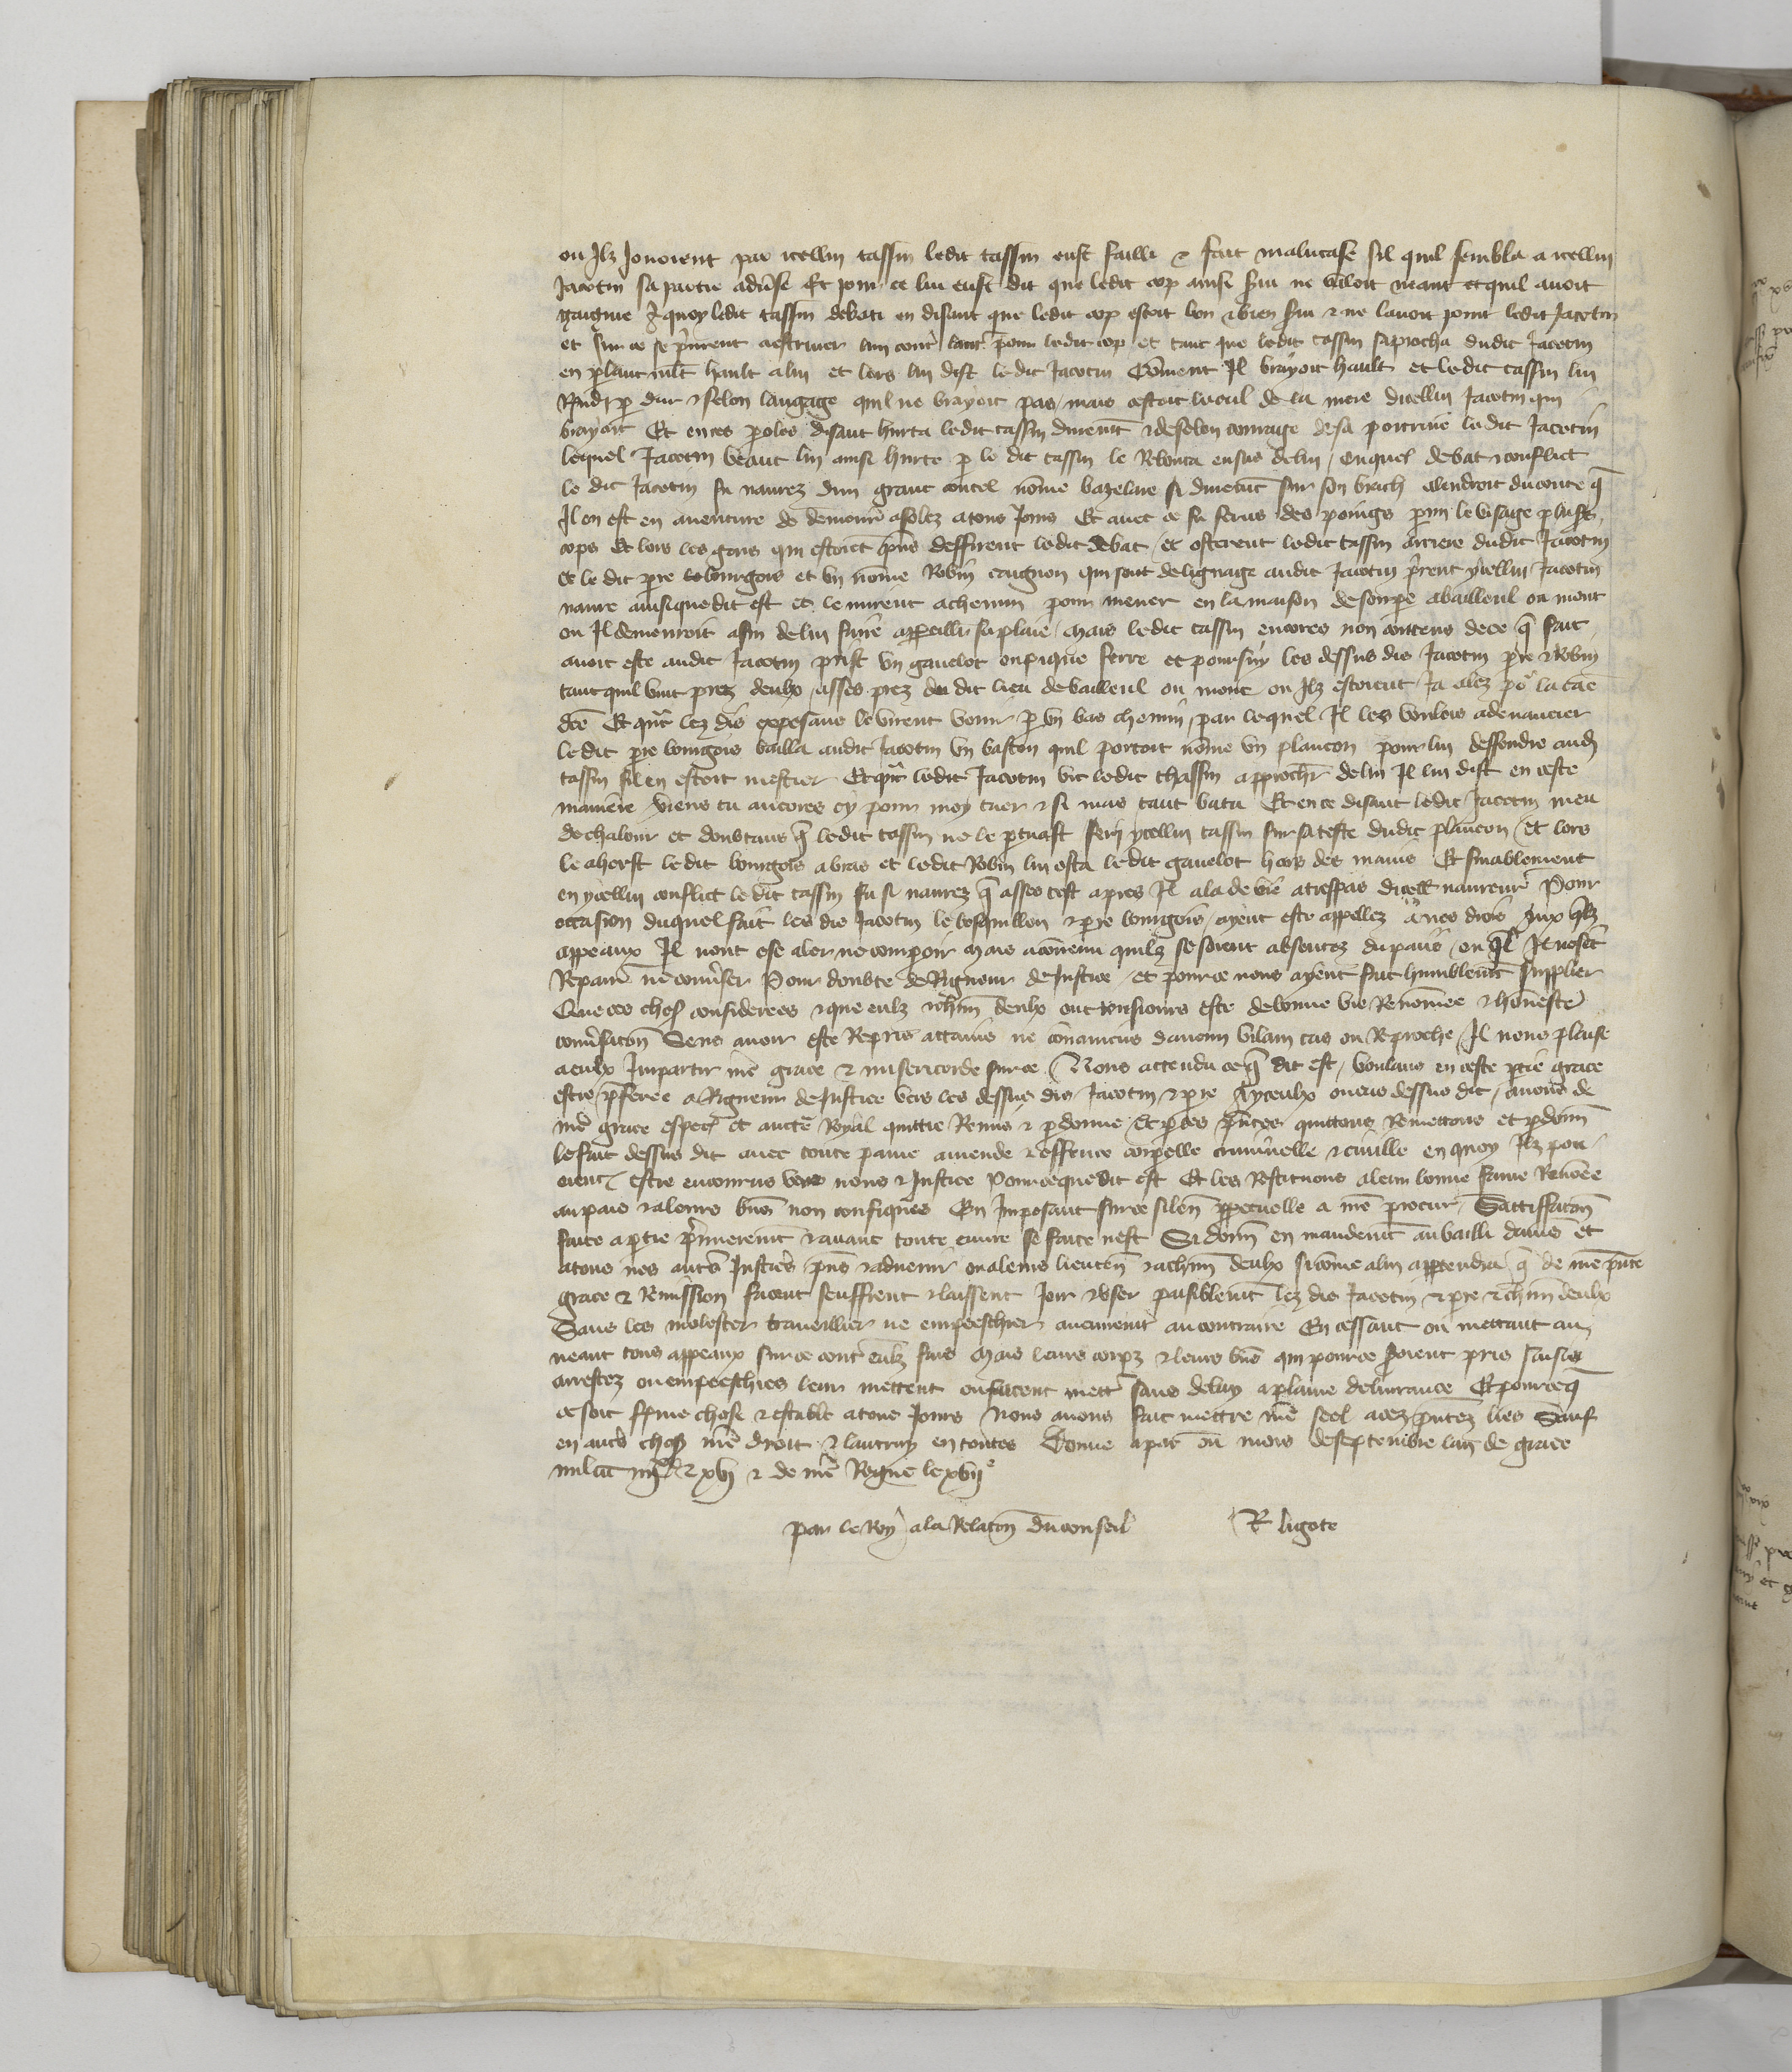 ou Ilz Jouoient par icellui tassin ledit tassin eust failli & fait malucase sil quil sembla a icellui
Jacotin sa partie adūse Et pour ce lui eust dit que ledit cop ainsi feru ne valoit neant et quil auoit
gaignie A quoy ledit tassin debati en disant que ledit cop estoit bon & bien feru & ne lauoit point ledit Jacotin
et sur ce se p̄irent a estriuer lun cont̄ laut̄ pour ledit cop et tant que ledit tassin saprocha dudit Jacotin
en p̱lant mlt̄ hault a lui et lors lui dist ledit Jacotin Cōment Il brayoit hault et ledit tassin lui
Rñdi p̱ dur & felon langage quil ne brayoit pas / mais cestoit le cul de la mere dicellui Jacotin qui
brayoit Et en ces p̱oles disant hurta ledit tassin durem̄t & de felon courage de sa poictrine ledit Jacotin
lequel Jacotin veant lui ainsi hurte p̱ le dit tassin le Rebouta ensus de lui / ou quel debat & conflict
le dit Jacotin fu naurez dun grant coutel nōme bazelaire si durem̄t sur son brach alendroit du coute q̄
Il en est en auenture de demour̄ afolez a tous Jours Et auec ce fu ferus des poings p̱mi le visage plus̄s
cops Et lors les gens qui estoiēt p̄ns deffirent ledit debat / et osterent ledit tassin arriere dudit Jacotin
Et le dit p̄re le bourgois et vn nōme Robin caignon qui sont de lignage audit Jacotin p̄rent ycellui Jacotin
naure ainsi que dit est et le mirent a chemin pour mener en la maison de son p̱e a bailleul ou mont
ou Il demouroit afin de lui faire app̱eillier sa plaie / Mais ledit tassin encores non contens de ce q̄ fait
auoit este audit Jacotin prist vn gauelot ou pique ferre et poursuy les dessus dis Jacotin p̄re & Robin
tant quil vint prez deulx / asses prez du dit lieu de bailleul ou mont ou Ilz estoient Ja alez po͛ la cāe
dc̄e Et qūt lez dis exposans le virent venir p̱ vn bas chemin / par lequel Il les vouloit adeuancier
le dit p̄re bourgois bailla audit Jacotin vn baston quil portoit nōme vn plancon pour lui deffendre aud
tassin sil en estoit mestier Et qūt ledit Jacotin vit ledit thassin approch̄r de lui Il lui dist en ceste
maniere viens tu ancores cy pour moy tuer & si mas tant batu Et en ce disant ledit Jacotin meu
de chalour et doubtans q̄ ledit tassin ne le p̱tuast feri ycellui tassin sur sa teste dudit plancon / et lors
le aherst le dit bourgois a bras et ledit Robin lui osta ledit gauelot hors des mains Et finablement
en ycellui conflict le dit tassin fu si naurez q̄ asses tost apres Il ala de vie a trespas dicell̄ naureur̄ Pour
occasion duquel fait les dis Jacotin le bosquillon & p̄re bourgois / ayent este appellez a nos drois Aux q̄lz
appeaux Il nont ose aler ne comp̱oir Mais a conuenu quilz se soient absentez du pais / ou q̄l Il nosēt
Repair̄ ne conūser Pour doubte de Rigueur de Justice / et pour ce nous ayent fait humblem̄t supplier
Que ces chos̄ considerees & que eulx & ch̄un deulx ont tousiours este de bonne vie Renōmee & honneste
conūsacōn Sens auoir este Repris attains ne conuaincus daucun vilain cas ou Reproche / Il nous plaise
a eulx Impartir nr̄e grace & misericorde sur ce / Nous attendu ce q̄ dit est / voulans en ceste p̱tie grace
estre p̄feree a Rigueur de Justice vers les dessus dis Jacotin & p̄re A yceulx ou cas dessus dit / auons de
nr̄e grace esp̄ecl̄ et auct̄e Royal quittie Remis & p̱donne Et p̱ ces p̄ntes quittons Remettons et p̱donn̄
le fait dessus dit auec toute paine amende & offence corp̱elle criminelle & ciuille en quoy Ilz pou
oient estre encourus vers nous & Justice Pour ce que dit est Et les Restituons a leur bonne fame Renōee
au pais & a leurs biēs non confisques En Imposant sur ce silen̄ pp̱etuelle a nr̄e procur̄ Sattisfacōn
faite a p̱tie p̄mierem̄t & auant toute euure se faite nest Si donn̄ en mandem̄t au bailli damiēs et
a tous nos aut̄s Justic̄s p̄ns & aduenir ou a leurs lieuten̄ & a ch̄un deulx si cōme a lui app̱tendra q̄ de nr̄e p̄nte
grace & Remission facent seuffrent & laissent Joir & vser paisiblem̄t lez dis Jacotin & p̄re & ch̄un deulx
Sans les molester trauaillier ne empeschier aucunem̄t au contraire En cessant ou mettant au
neant tous appeaux sur ce cont̄ eulz fais Mais leurs corpz & leurs biēs qui pour ce seroient pris saisis
arrestez ou empeschies leur mettent ou facent mett̄ sans delay a plaine deliurance Et pour ce q̄
ce soit ferme chose & estable a tous Jours Nous auons fait mettre nr̄e seel a cez p̄ntez lr̄es Sauf
en aut̄s chos̄ nr̄e droit & lautruy en toutes Donne a paris ou mois de septembre lan de grace
mil cccc iiiixx & xvj & de nr̄e Regne le xvije
par le Roy a la Relacōn du conseil R ligote